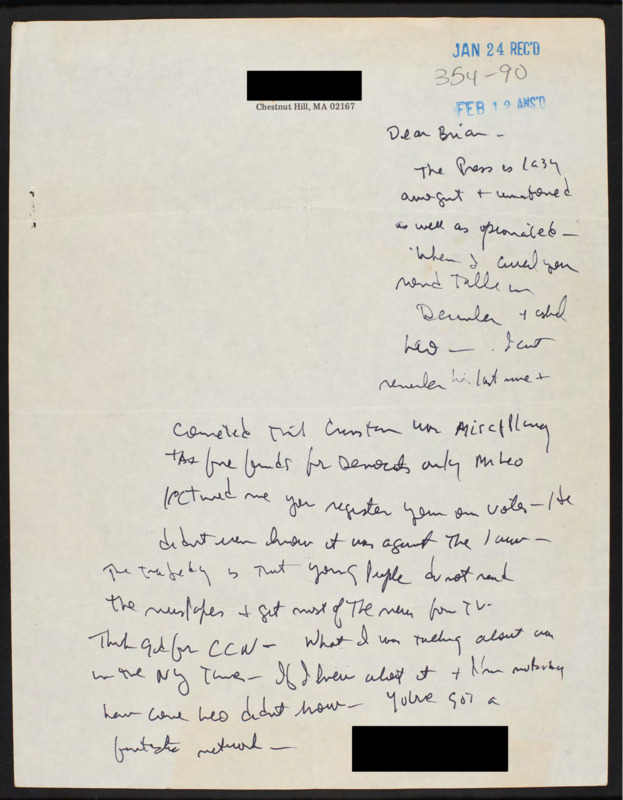 JAN 24 REC'D
354-90
Chestnut Hill, MA 02167
FEB 12 ANS'D
Dear Brian -
The Press is lazy
arrogant +
as well as opinionated -
When I called your
in
December + asked
I can't
remember his last name +
that Cranston was
tax free funds for Democrats only Mr Leo
me you register your own votes - He
didn't even know it was against the law -
The tragedy is that young People do not read
the newspapers + get most of the news from TV -
Thank God for CCN - What I was talking about was
in the NY Times - If I knew about it + I'm nobody
how come Leo didn't know - You've got a
fantastic network -